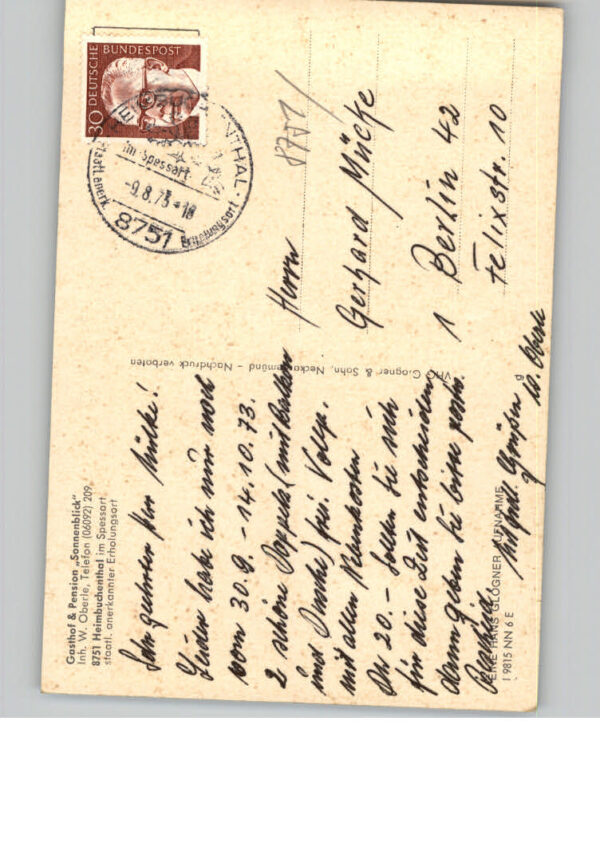 Gasthof & Pension „Sonnenblick"
Inh. W. Oberle, Telefon (06092) 209
8751 Heimbuchenthal im Spessart
staatl. anerkannter Erholungsort
Sehr geehrter Herr Mücke!
Leider habe ich nur noch
vom 30.9. - 14.10.73.
2 schöne Doppelz. (mit Balkon
und Dusche) frei. Vollp.
mit allen Nebenkosten
DM 20.- Sollten Sie sich
für diese Zeit entscheiden
dann geben Sie bitte
Bescheid.
Mit frdl. Grüßen
W. Oberle
EINE HANS GLOGNER AUFNAHME
I 9815 NN 6 E
VHG Glogner & Sohn, Neckargemünd - Nachdruck verboten
30 DEUTSCHE BUNDESPOST
im Spessart
-9.8.73-18
8751
Staatl. anerk.
8751/
Herrn
Gerhard Mücke
1 Berlin 42
Felixstr. 10